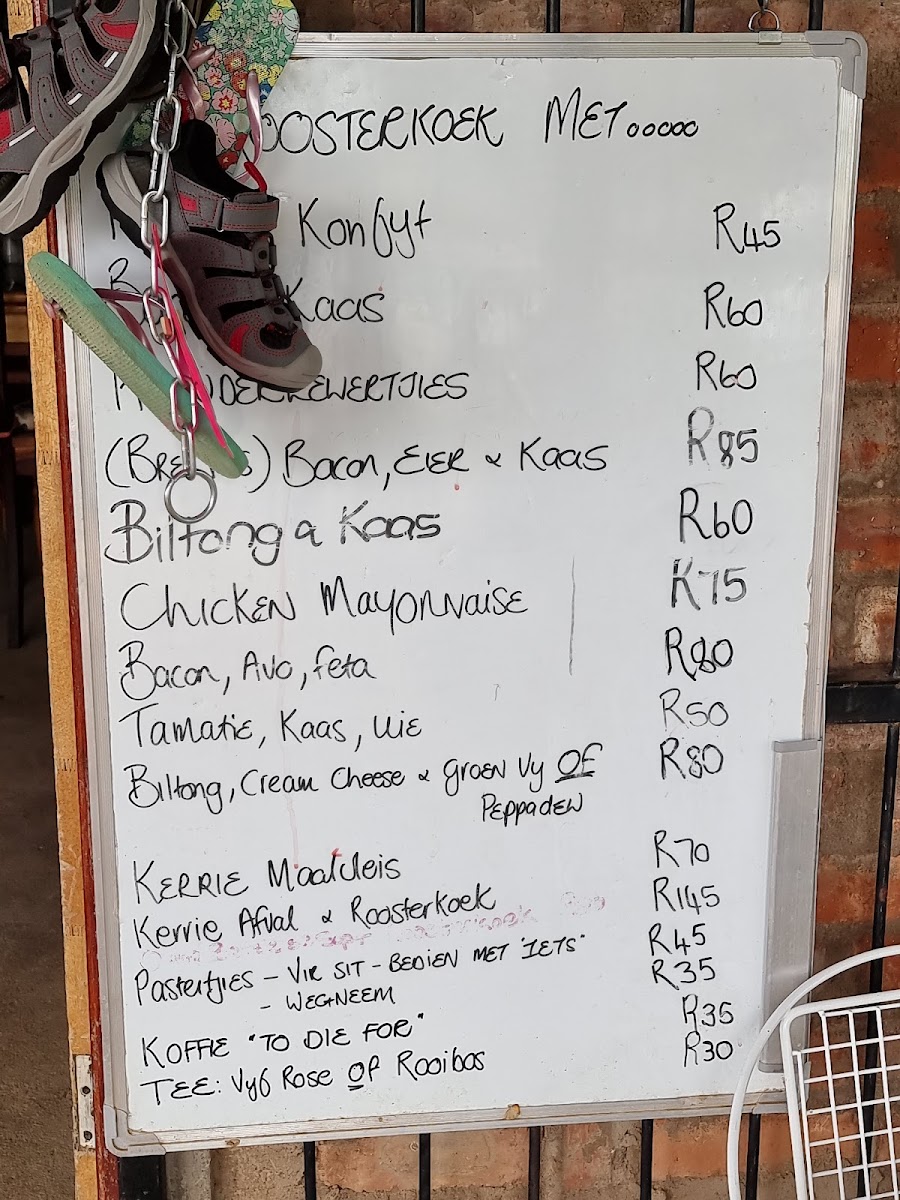 OOSTERKOEK MET.....
Konfyt R45
Kaas R60
R60
Bacon, EIER & Kaas R85
Biltong & Kaas R60
CHICKEN MAYONNAISE R75
Bacon, Avo, feta R80
Tamatie, Kaas, Uie R50
Biltong, Cream Cheese & Groen Vy OF R80
PEPPADEW
KERRIE Maalvleis R70
Kerrie Afval & Roosterkoek R145
Pasteitjies - VIR SIT - BEDIEN MET "IETS" R45
- WEGNEEM R35
KOFFIE "TO DIE FOR" R35
TEE: Vyf Rose of Rooibos R30